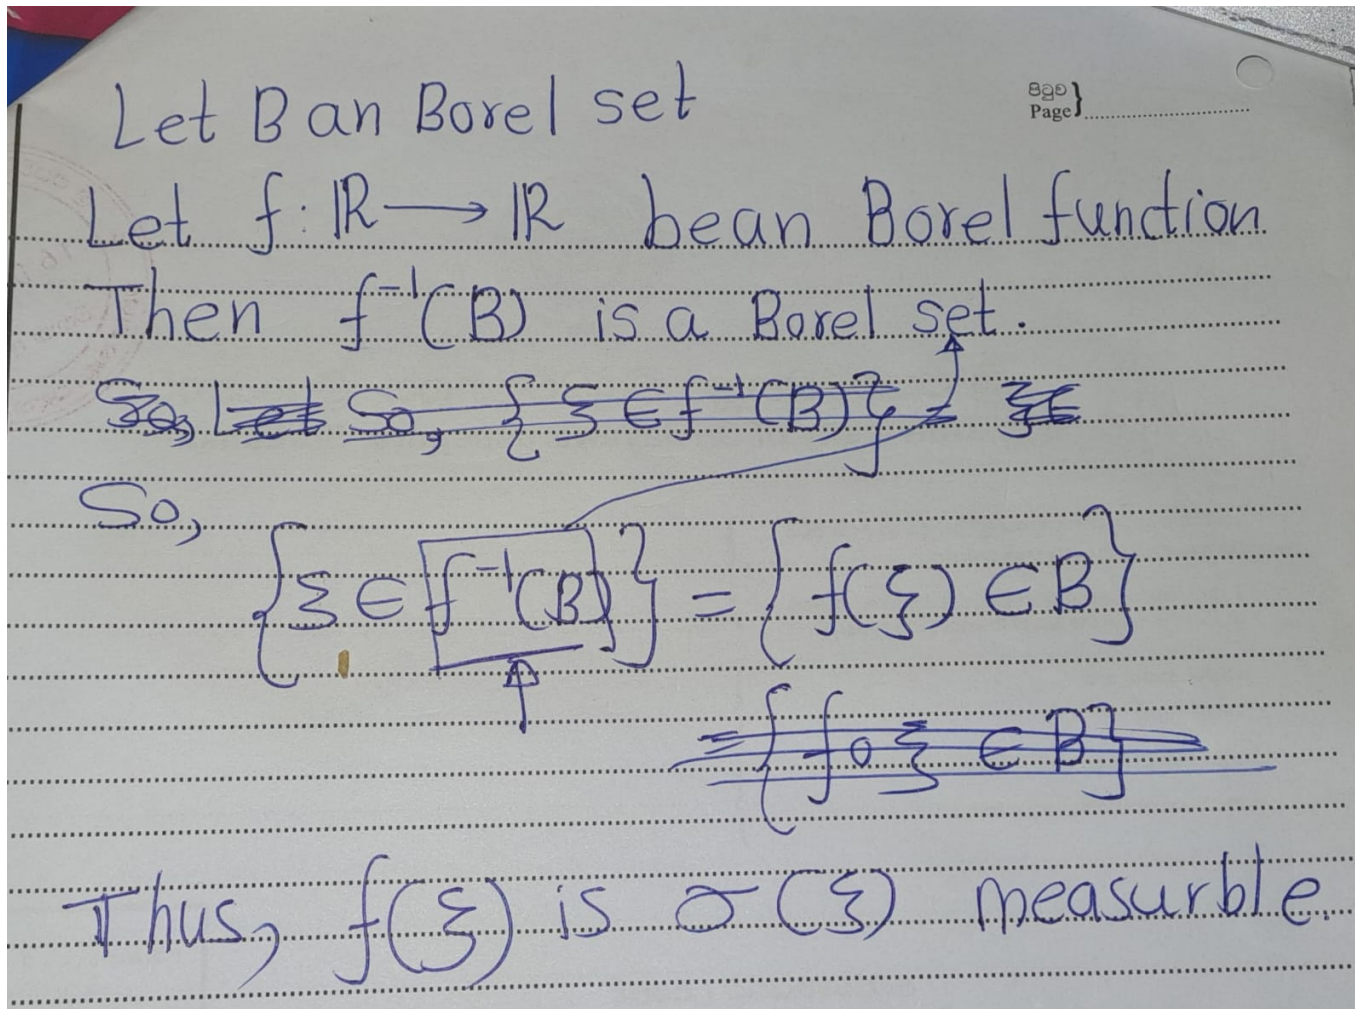 Let B an Borel set
පිටුව
Page}
Let f: ℝ ⟶ ℝ bean Borel function
Then f⁻¹(B) is a Borel set.
So, Let So, { ξ ∈ f⁻¹(B)} = ξ ∈
So,
{ξ ∈ f⁻¹(B)} = { f(ξ) ∈ B}
= { f∘ξ ∈ B}
Thus, f(ξ) is σ(ξ) measurble.